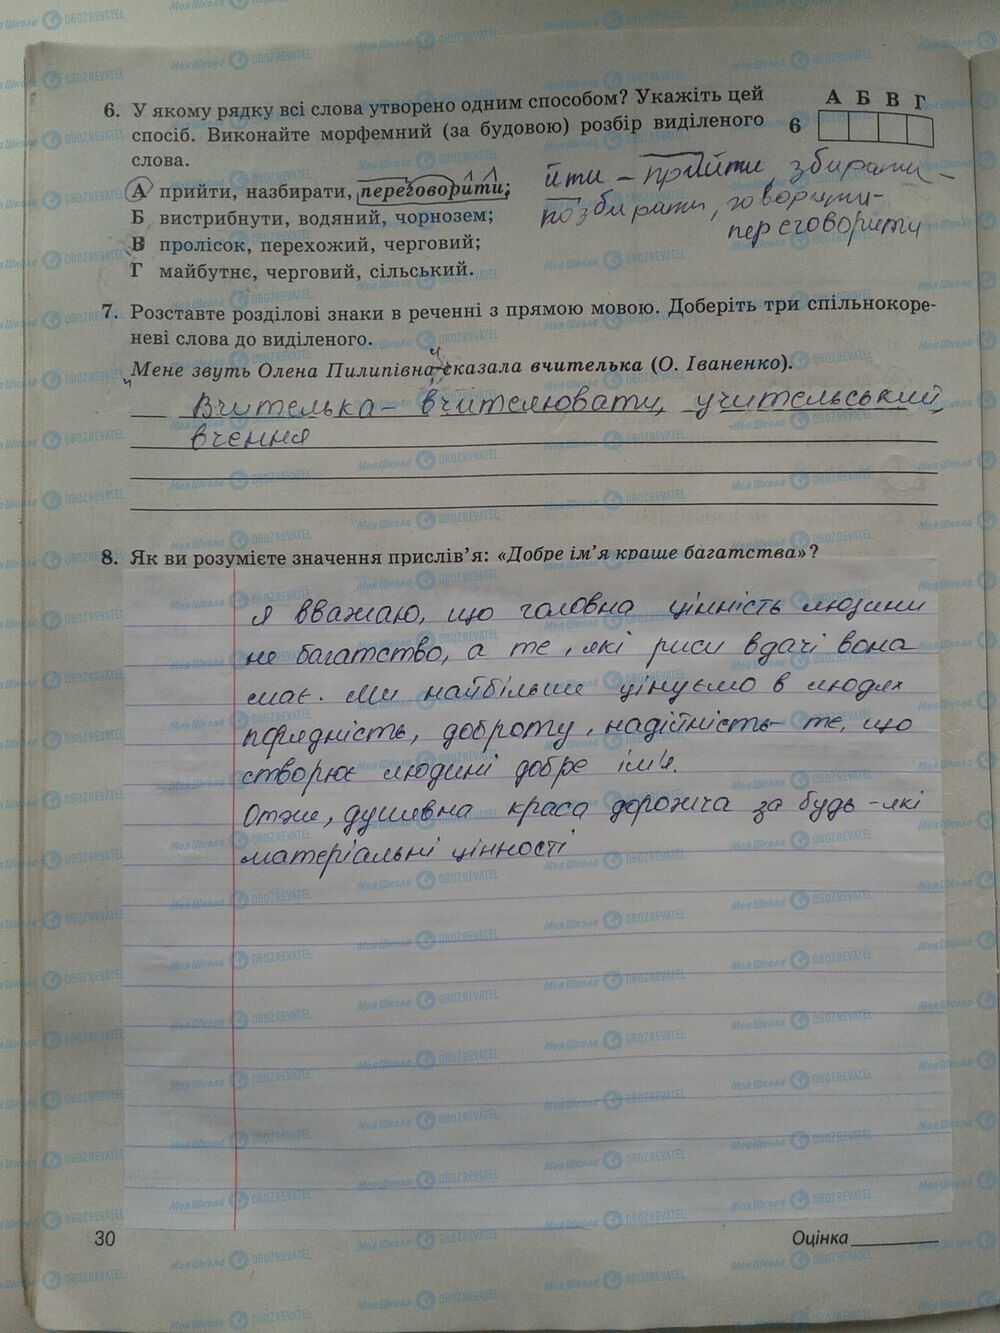 6. У якому рядку всі слова утворено одним способом? Укажіть цей
спосіб. Виконайте морфемний (за будовою) розбір виділеного
слова.
А Б В Г
6
А прийти, назбирати, переговорити;
Б вистрибнути, водяний, чорнозем;
В пролісок, перехожий, черговий;
Г майбутнє, черговий, сільський.
йти – прийти, збирати –
позбирати, говорити-
переговорити
7. Розставте розділові знаки в реченні з прямою мовою. Доберіть три спільнокоре-
неві слова до виділеного.
Мене звуть Олена Пилипівна сказала вчителька (О. Іваненко).
Вчителька – вчителювати, учительський,
вчення
8. Як ви розумієте значення прислів’я: «Добре ім’я краще багатства»?
Я вважаю, що головна цінність людини
не багатство, а те, які риси вдачі вона
має. Ми найбільше цінуємо в людях
порядність, доброту, надійність – те, що
створює людині добре ім'я.
Отже, душевна краса дорожча за будь-які
матеріальні цінності
30
Оцінка